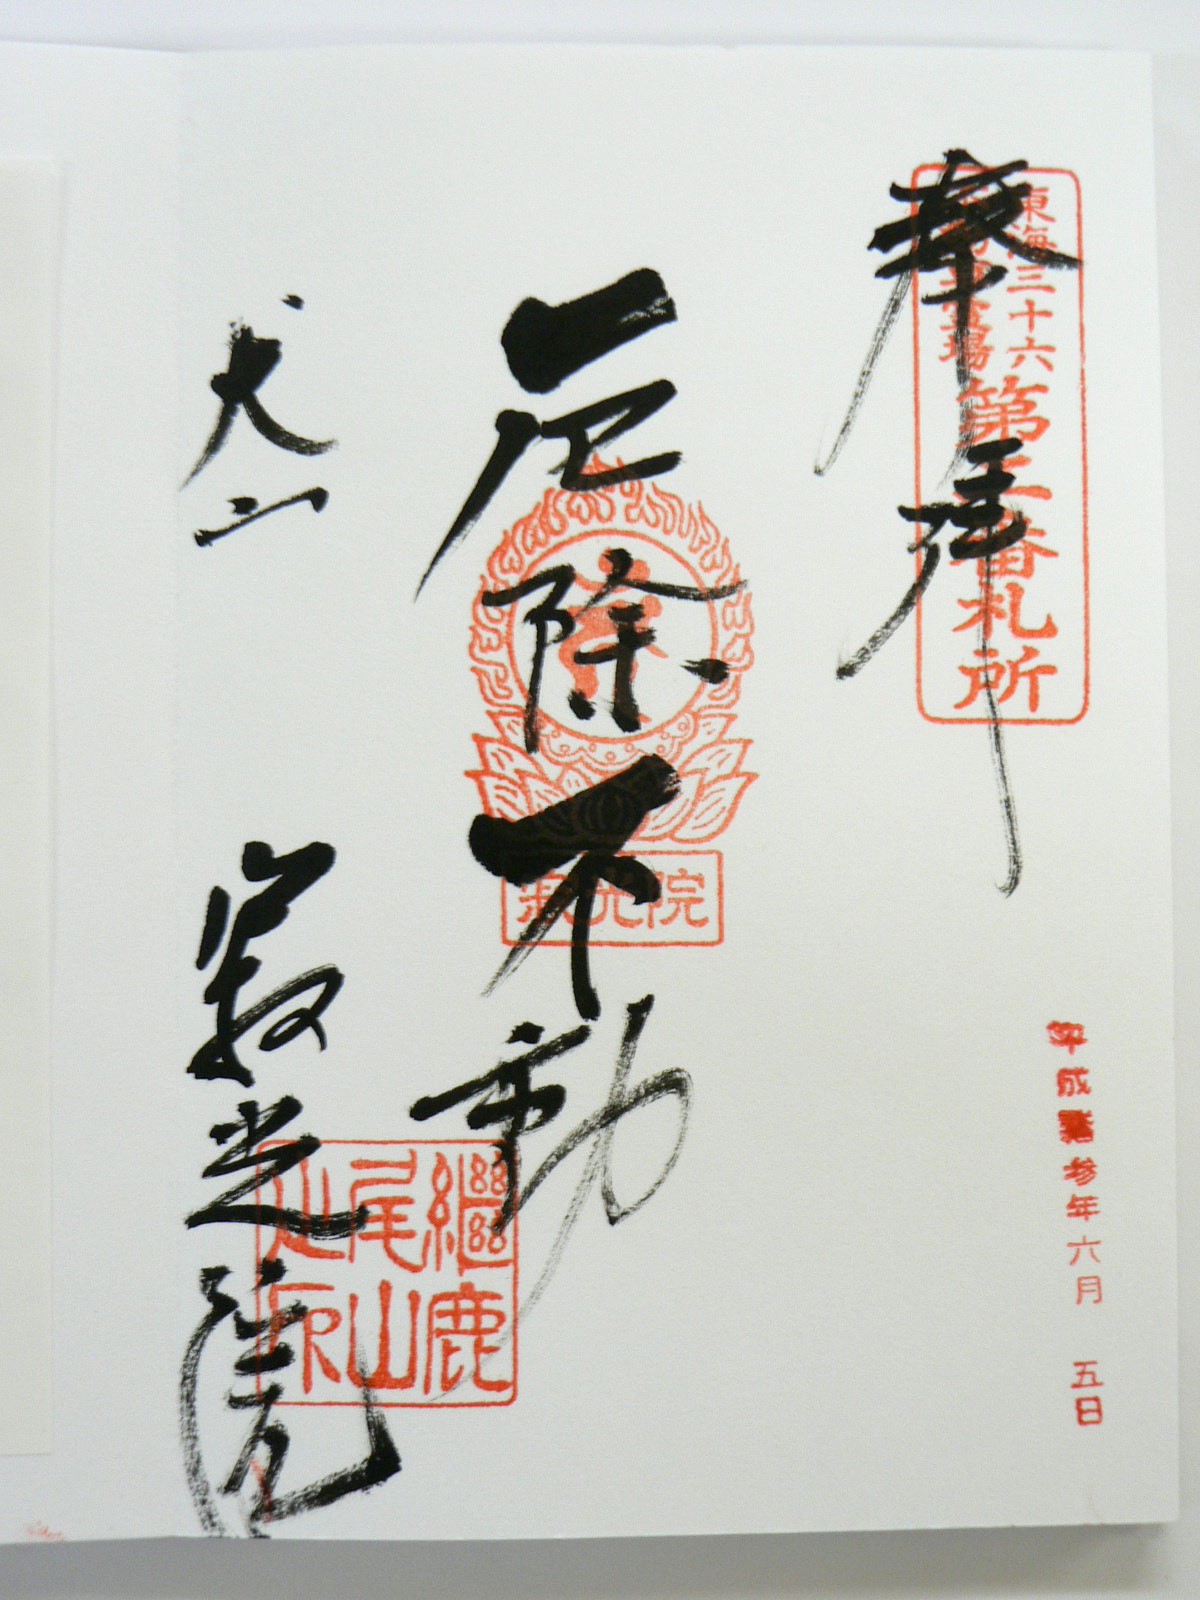 奉拝
東海三十六
不動尊霊場
第二番札所
平成 参年六月 五日
厄除不動
寂光院
犬山
寂光院
継鹿
尾山
之印